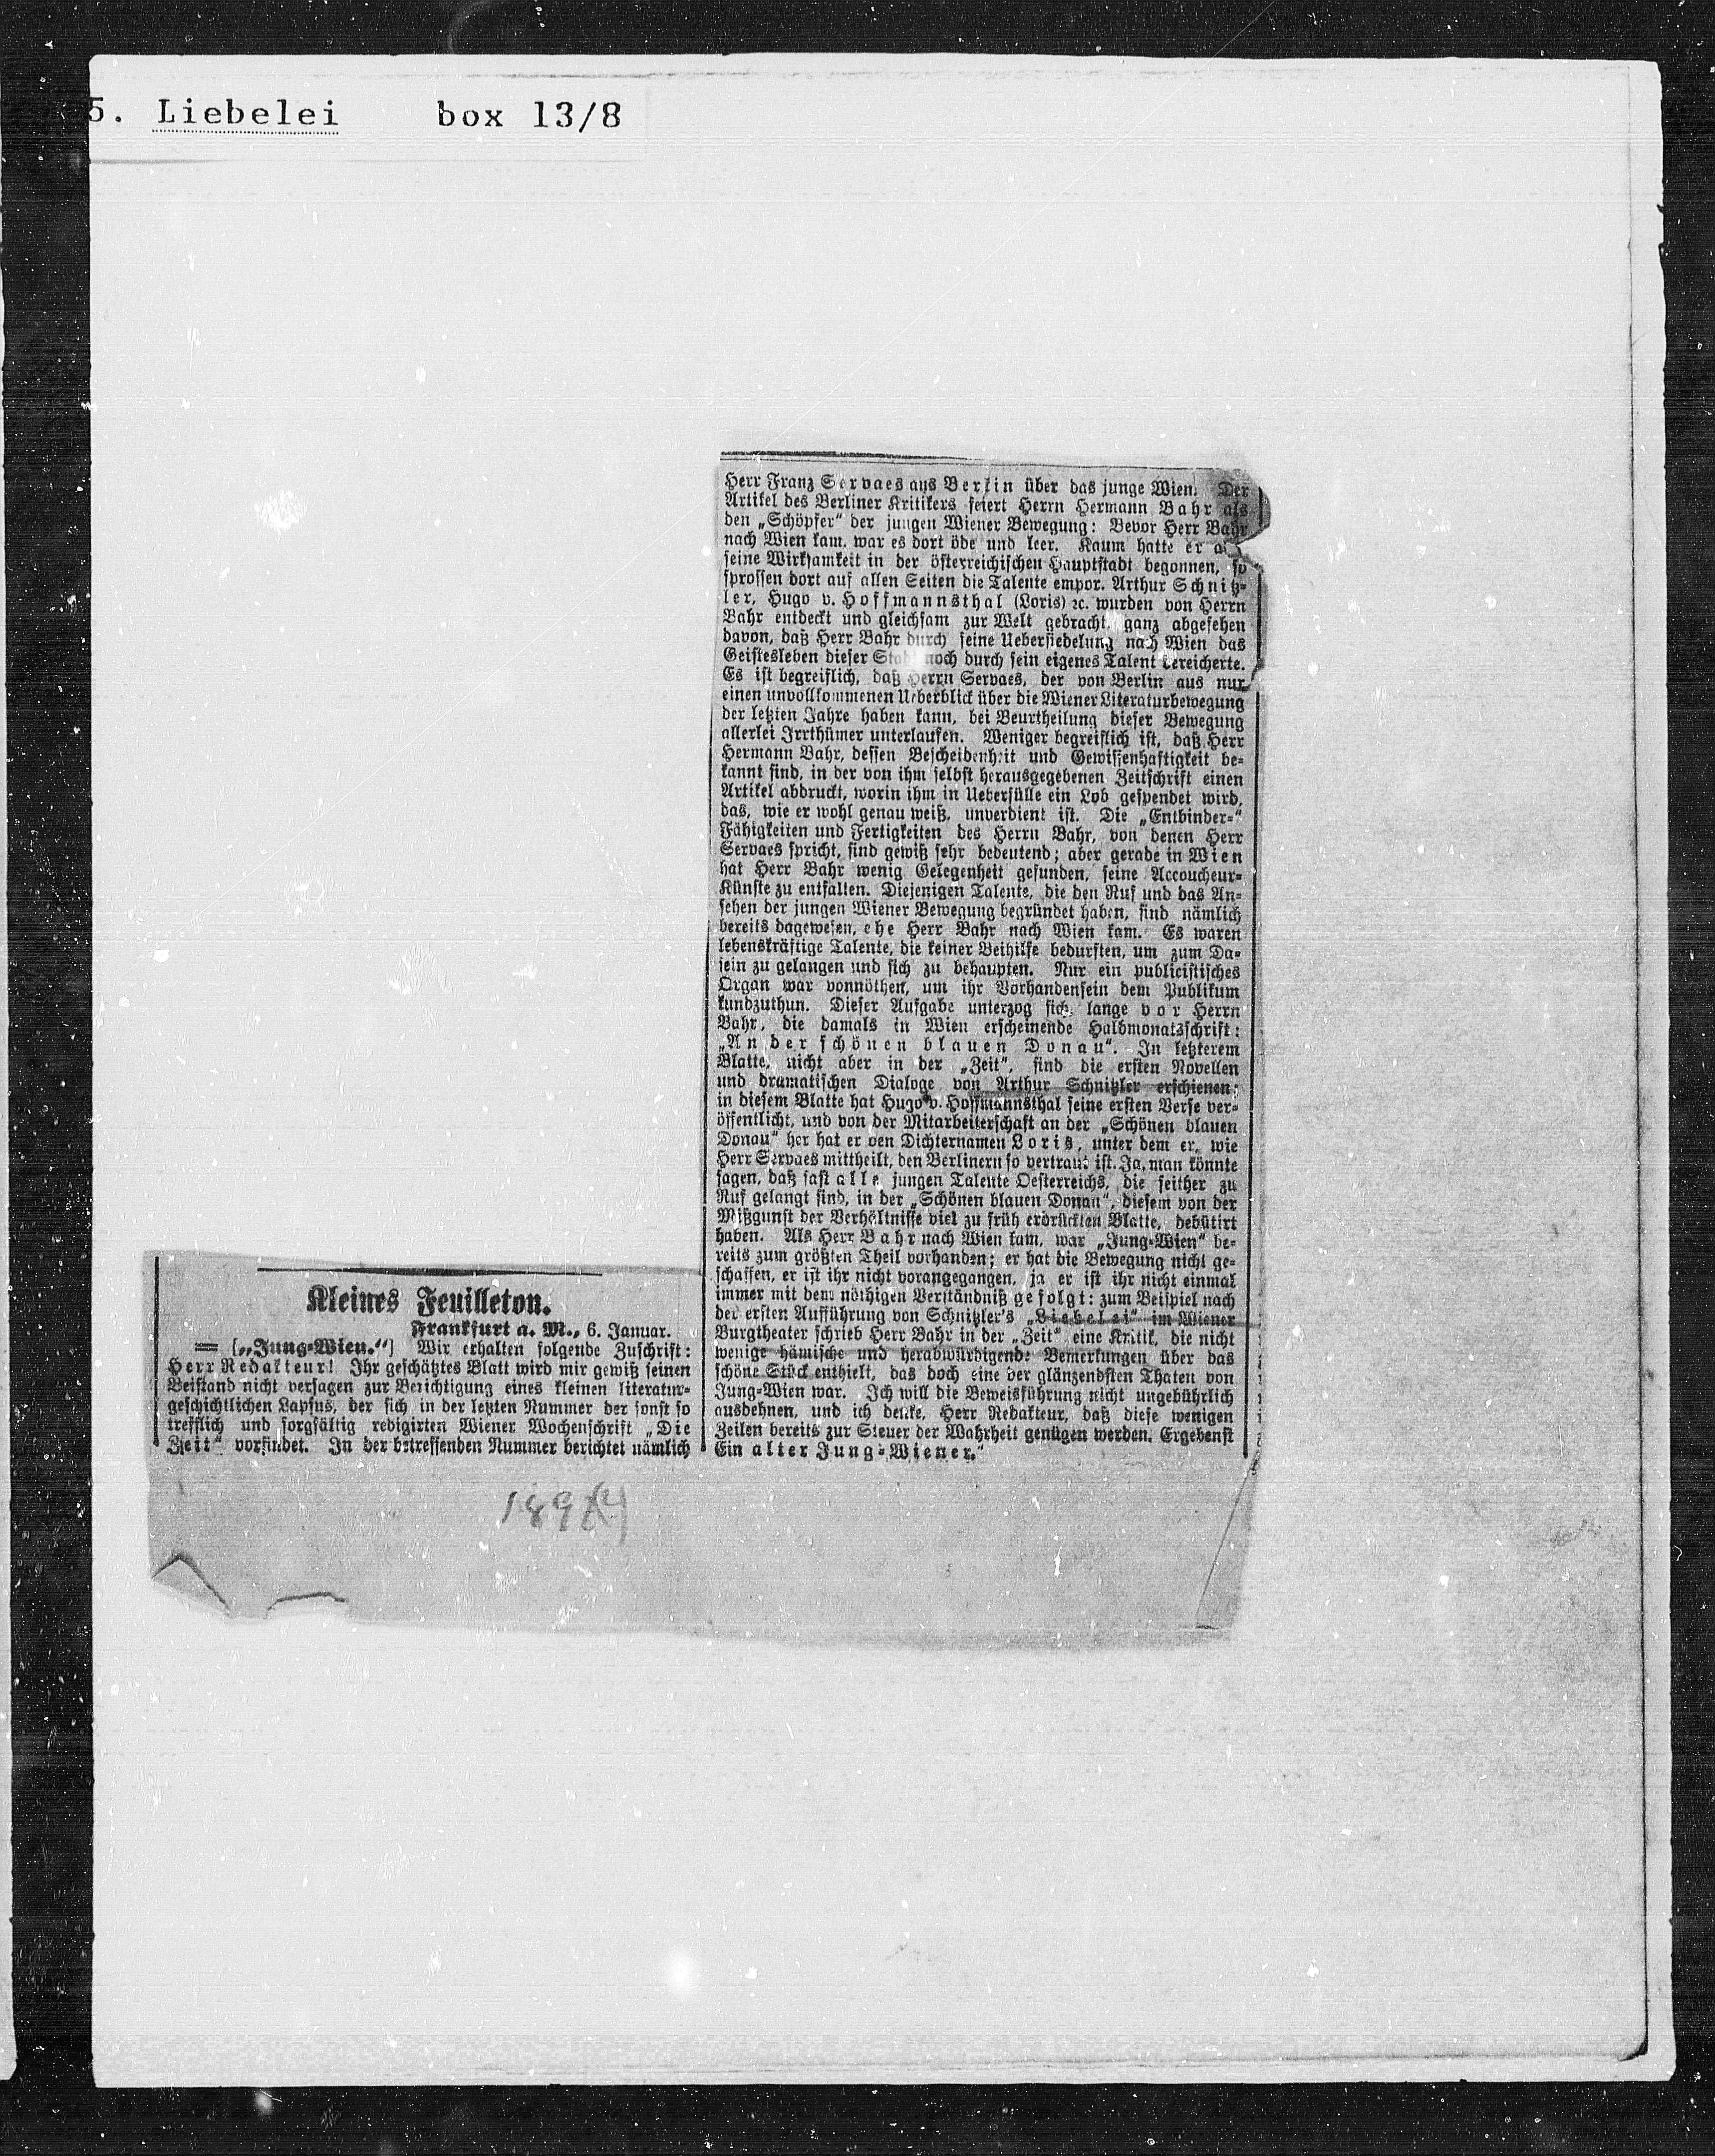 5. Liebelei box 13/8
Kleines Feuilleton.
Frankfurt a. M., 6. Januar.
= [„Jung-Wien.“] Wir erhalten folgende Zuschrift:
Herr Redakteur! Ihr geschätztes Blatt wird mir gewiß seinen
Beistand nicht versagen zur Berichtigung eines kleinen literatur-
geschichtlichen Lapsus, der sich in der letzten Nummer der sonst so
trefflich und sorgfältig redigirten Wiener Wochenschrift „Die
Zeit“ vorfindet. In der betreffenden Nummer berichtet nämlich
Herr Franz Servaes aus Berlin über das junge Wien. Der
Artikel des Berliner Kritikers feiert Herrn Hermann Bahr als
den „Schöpfer“ der jungen Wiener Bewegung: Bevor Herr Bahr
nach Wien kam, war es dort öde und leer. Kaum hatte er
seine Wirksamkeit in der österreichischen Hauptstadt begonnen, so
sprossen dort auf allen Seiten die Talente empor. Arthur Schnitz-
ler, Hugo v. Hoffmannsthal (Loris) ꝛc. wurden von Herrn
Bahr entdeckt und gleichsam zur Welt gebracht, ganz abgesehen
davon, daß Herr Bahr durch seine Uebersiedelung nach Wien das
Geistesleben dieser Stadt noch durch sein eigenes Talent bereicherte.
Es ist begreiflich, daß Herrn Servaes, der von Berlin aus nur
einen unvollkommenen Ueberblick über die Wiener Literaturbewegung
der letzten Jahre haben kann, bei Beurtheilung dieser Bewegung
allerlei Irrthümer unterlaufen. Weniger begreiflich ist, daß Herr
Hermann Bahr, dessen Bescheidenheit und Gewissenhaftigkeit be-
kannt sind, in der von ihm selbst herausgegebenen Zeitschrift einen
Artikel abdruckt, worin ihm in Ueberfülle ein Lob gespendet wird,
das, wie er wohl genau weiß, unverdient ist. Die „Entbinder-“
Fähigkeiten und Fertigkeiten des Herrn Bahr, von denen Herr
Servaes spricht, sind gewiß sehr bedeutend; aber gerade in Wien
hat Herr Bahr wenig Gelegenheit gefunden, seine Accoucheur-
Künste zu entfalten. Diejenigen Talente, die den Ruf und das An-
sehen der jungen Wiener Bewegung begründet haben, sind nämlich
bereits dagewesen, ehe Herr Bahr nach Wien kam. Es waren
lebenskräftige Talente, die keiner Beihilfe bedurften, um zum Da-
sein zu gelangen und sich zu behaupten. Nur ein publicistisches
Organ war vonnöthen, um ihr Vorhandensein dem Publikum
kundzuthun. Dieser Aufgabe unterzog sich, lange vor Herrn
Bahr, die damals in Wien erscheinende Halbmonatsschrift:
„An der schönen blauen Donau“. In letzterem
Blatte, nicht aber in der „Zeit“, sind die ersten Novellen
und dramatischen Dialoge von Arthur Schnitzler erschienen;
in diesem Blatte hat Hugo v. Hoffmannsthal seine ersten Verse ver-
öffentlicht, und von der Mitarbeiterschaft an der „Schönen blauen
Donau“ her hat er den Dichternamen Loris, unter dem er, wie
Herr Servaes mittheilt, den Berlinern so vertraut ist. Ja, man könnte
sagen, daß fast alle jungen Talente Oesterreichs, die seither zu
Ruf gelangt sind, in der „Schönen blauen Donau“, diesem von der
Mißgunst der Verhältnisse viel zu früh erdrückten Blatte, debütirt
haben. Als Herr Bahr nach Wien kam, war „Jung-Wien“ be-
reits zum größten Theil vorhanden; er hat die Bewegung nicht ge-
schaffen, er ist ihr nicht vorangegangen, ja er ist ihr nicht einmal
immer mit dem nöthigen Verständniß gefolgt: zum Beispiel nach
der ersten Aufführung von Schnitzler's „Liebelei“ im Wiener
Burgtheater schrieb Herr Bahr in der „Zeit“ eine Kritik, die nicht
wenige hämische und herabwürdigende Bemerkungen über das
schöne Stück enthielt, das doch eine der glänzendsten Thaten von
Jung-Wien war. Ich will die Beweisführung nicht ungebührlich
ausdehnen, und ich denke, Herr Redakteur, daß diese wenigen
Zeilen bereits zur Steuer der Wahrheit genügen werden. Ergebenst
Ein alter Jung-Wiener.“